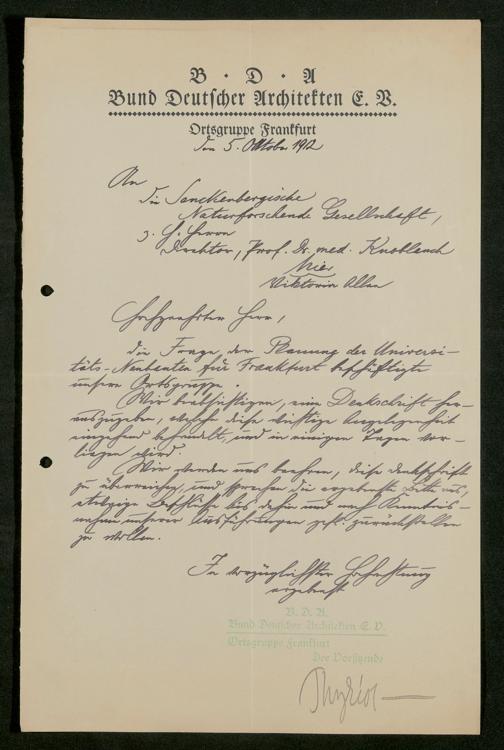 B · D · A
Bund Deutscher Architekten E. V.
Ortsgruppe Frankfurt
den 5. Oktober 1912
An
die Senckenbergische
Naturforschende Gesellschaft,
z. H. Herrn
Direktor, Prof. Dr. med. Knoblauch
hier
Viktoria Allee
Hochgeehrter Herr,
die Frage der Planung der Universi-
täts-Neubauten für Frankfurt beschäftigte
unsere Ortsgruppe.
Wir beabsichtigen, eine Denkschrift her-
auszugeben, welche diese wichtige Angelegenheit
eingehend behandelt, und in einigen Tagen vor-
liegen wird.
Wir werden uns beehren, diese Denkschrift
zu überreichen, und sprechen die ergebenste Bitte aus,
etwaige Beschlüsse bis dahin und nach Kenntnis-
nahme unserer Ausführungen gefl. zurückstellen
zu wollen.
In vorzüglichster Hochachtung
ergebenst
B. D. A.
Bund Deutscher Architekten E. V.
Ortsgruppe Frankfurt
Der Vorsitzende